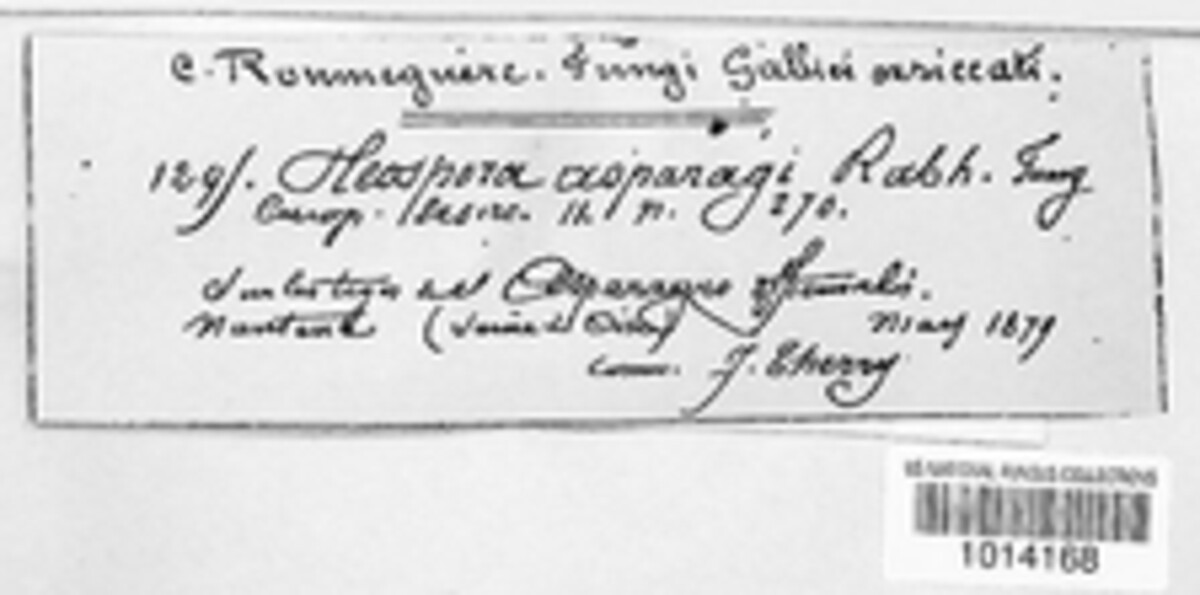 C. Roumeguère. Fungi Gallici exsiccati.
129/. Pleospora asparagi Rabh. Fung
Europ. exsicc. n. 270.
Sur les tiges de l' Asparagus
Nanterre (Seine et Oise) Mars 1879
Comm. J. Therry
US NATIONAL FUNGUS COLLECTIONS
1014168